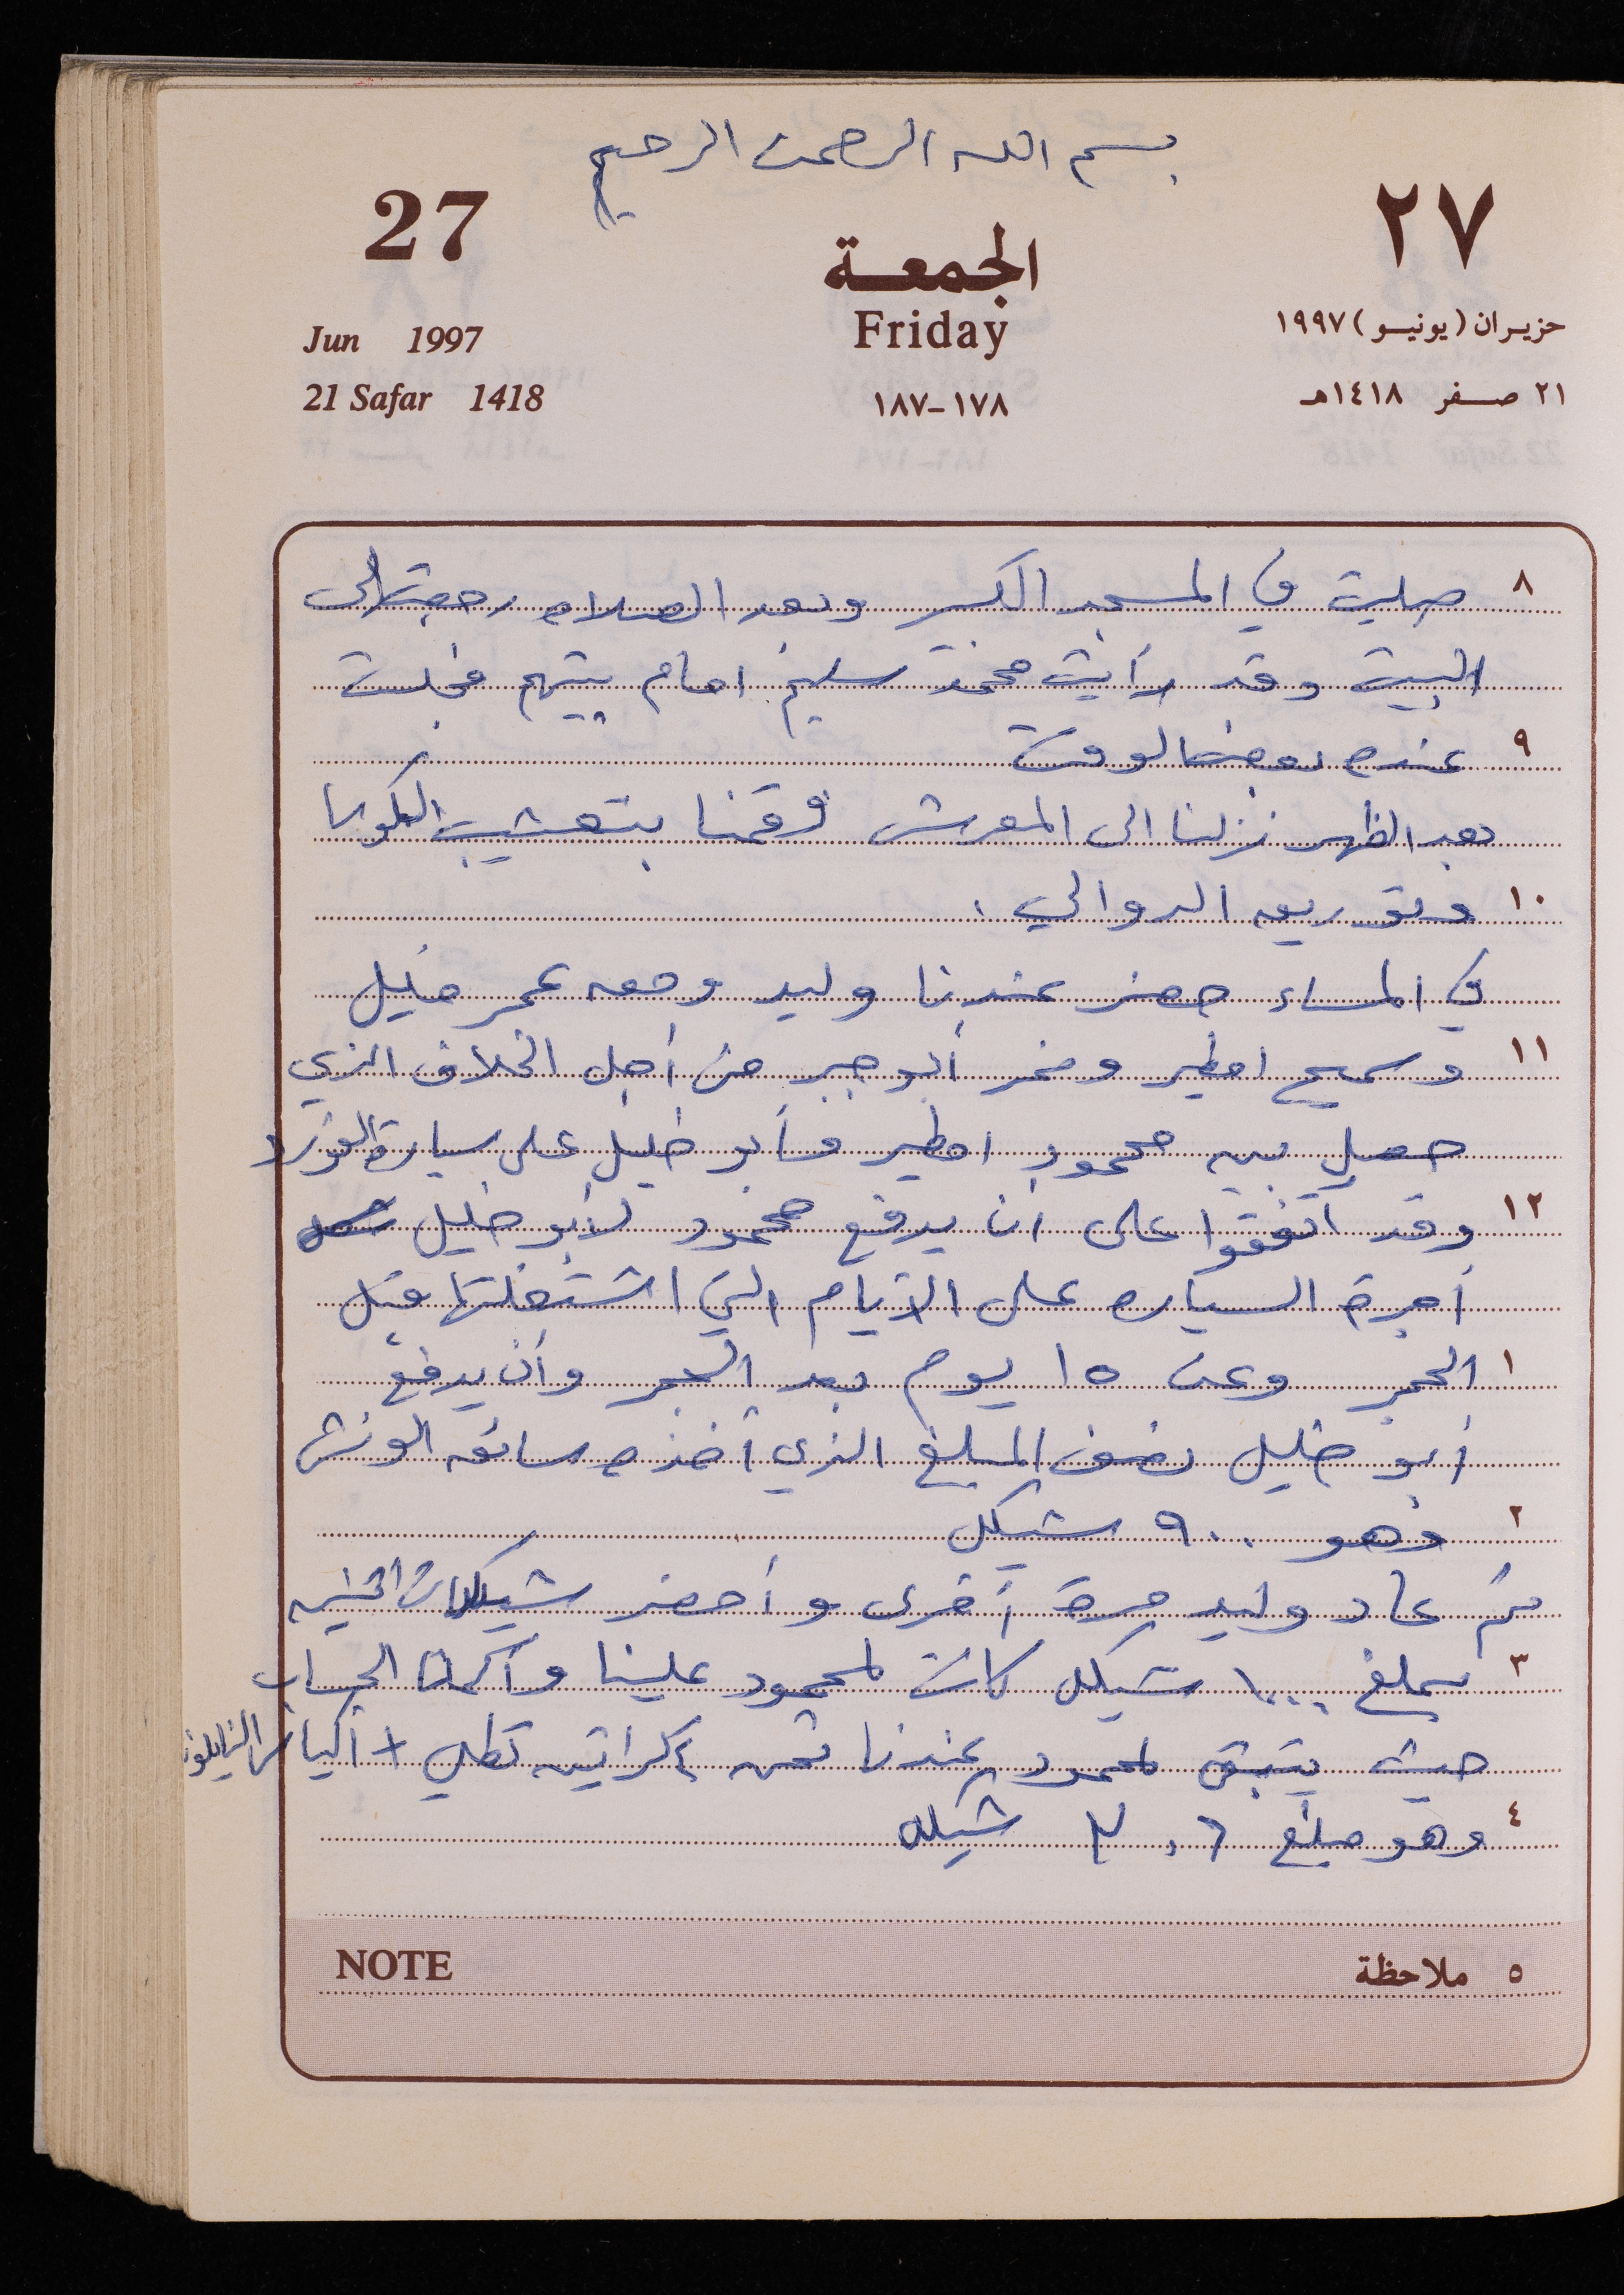 بسم الله الرحمن الرحيم
27
الجمعة
٢٧
Jun 1997
Friday
حزيران (يونيو) ١٩٩٧
21 Safar 1418
١٧٨-١٨٧
٢١ صفر ١٤١٨هـ
٨ صليت في المسجد الكبير وبعد الصلاه رجعت الى
البيت وقد رأيت محمد سليم امام بيتهم فجلست
٩ عنده بعض الوقت
بعد الظهر نزلنا الى المعرش وقمنا بتعشيب الكوسا
١٠ وتوريق الدوالي .
في المساء حضر عندنا وليد ومعه عمر خليل
١١ وسميح امطير وضر أبو جبر من أجل الخلاف الذي
حصل بين محمود امطير وأبو خليل على سيارة الفورد
١٢ وقد اتفقوا على ان يدفع محمود لأبو خليل
أجرة السياره على الأيام التي اشتغلتها قبل
١ الحجز وعن ١٥ يوم بعد الحجز وأن يدفع
أبو خليل نصف المبلغ الذي أخذه سائق الونش
٢ وهو ٩٠٠ شيكل
ثم عاد وليد مرة أخرى وأحضر شيكات اثنين
٣ بمبلغ ١٠٠٠ شيكل كانت لمحمود علينا وأكملنا الحساب
حيث يتبقى لمحمود عندنا ثمن كراتين تطلي + أكياس النايلون
٤ وهو مبلغ ٢٠٦ شيكل
NOTE
٥ ملاحظة